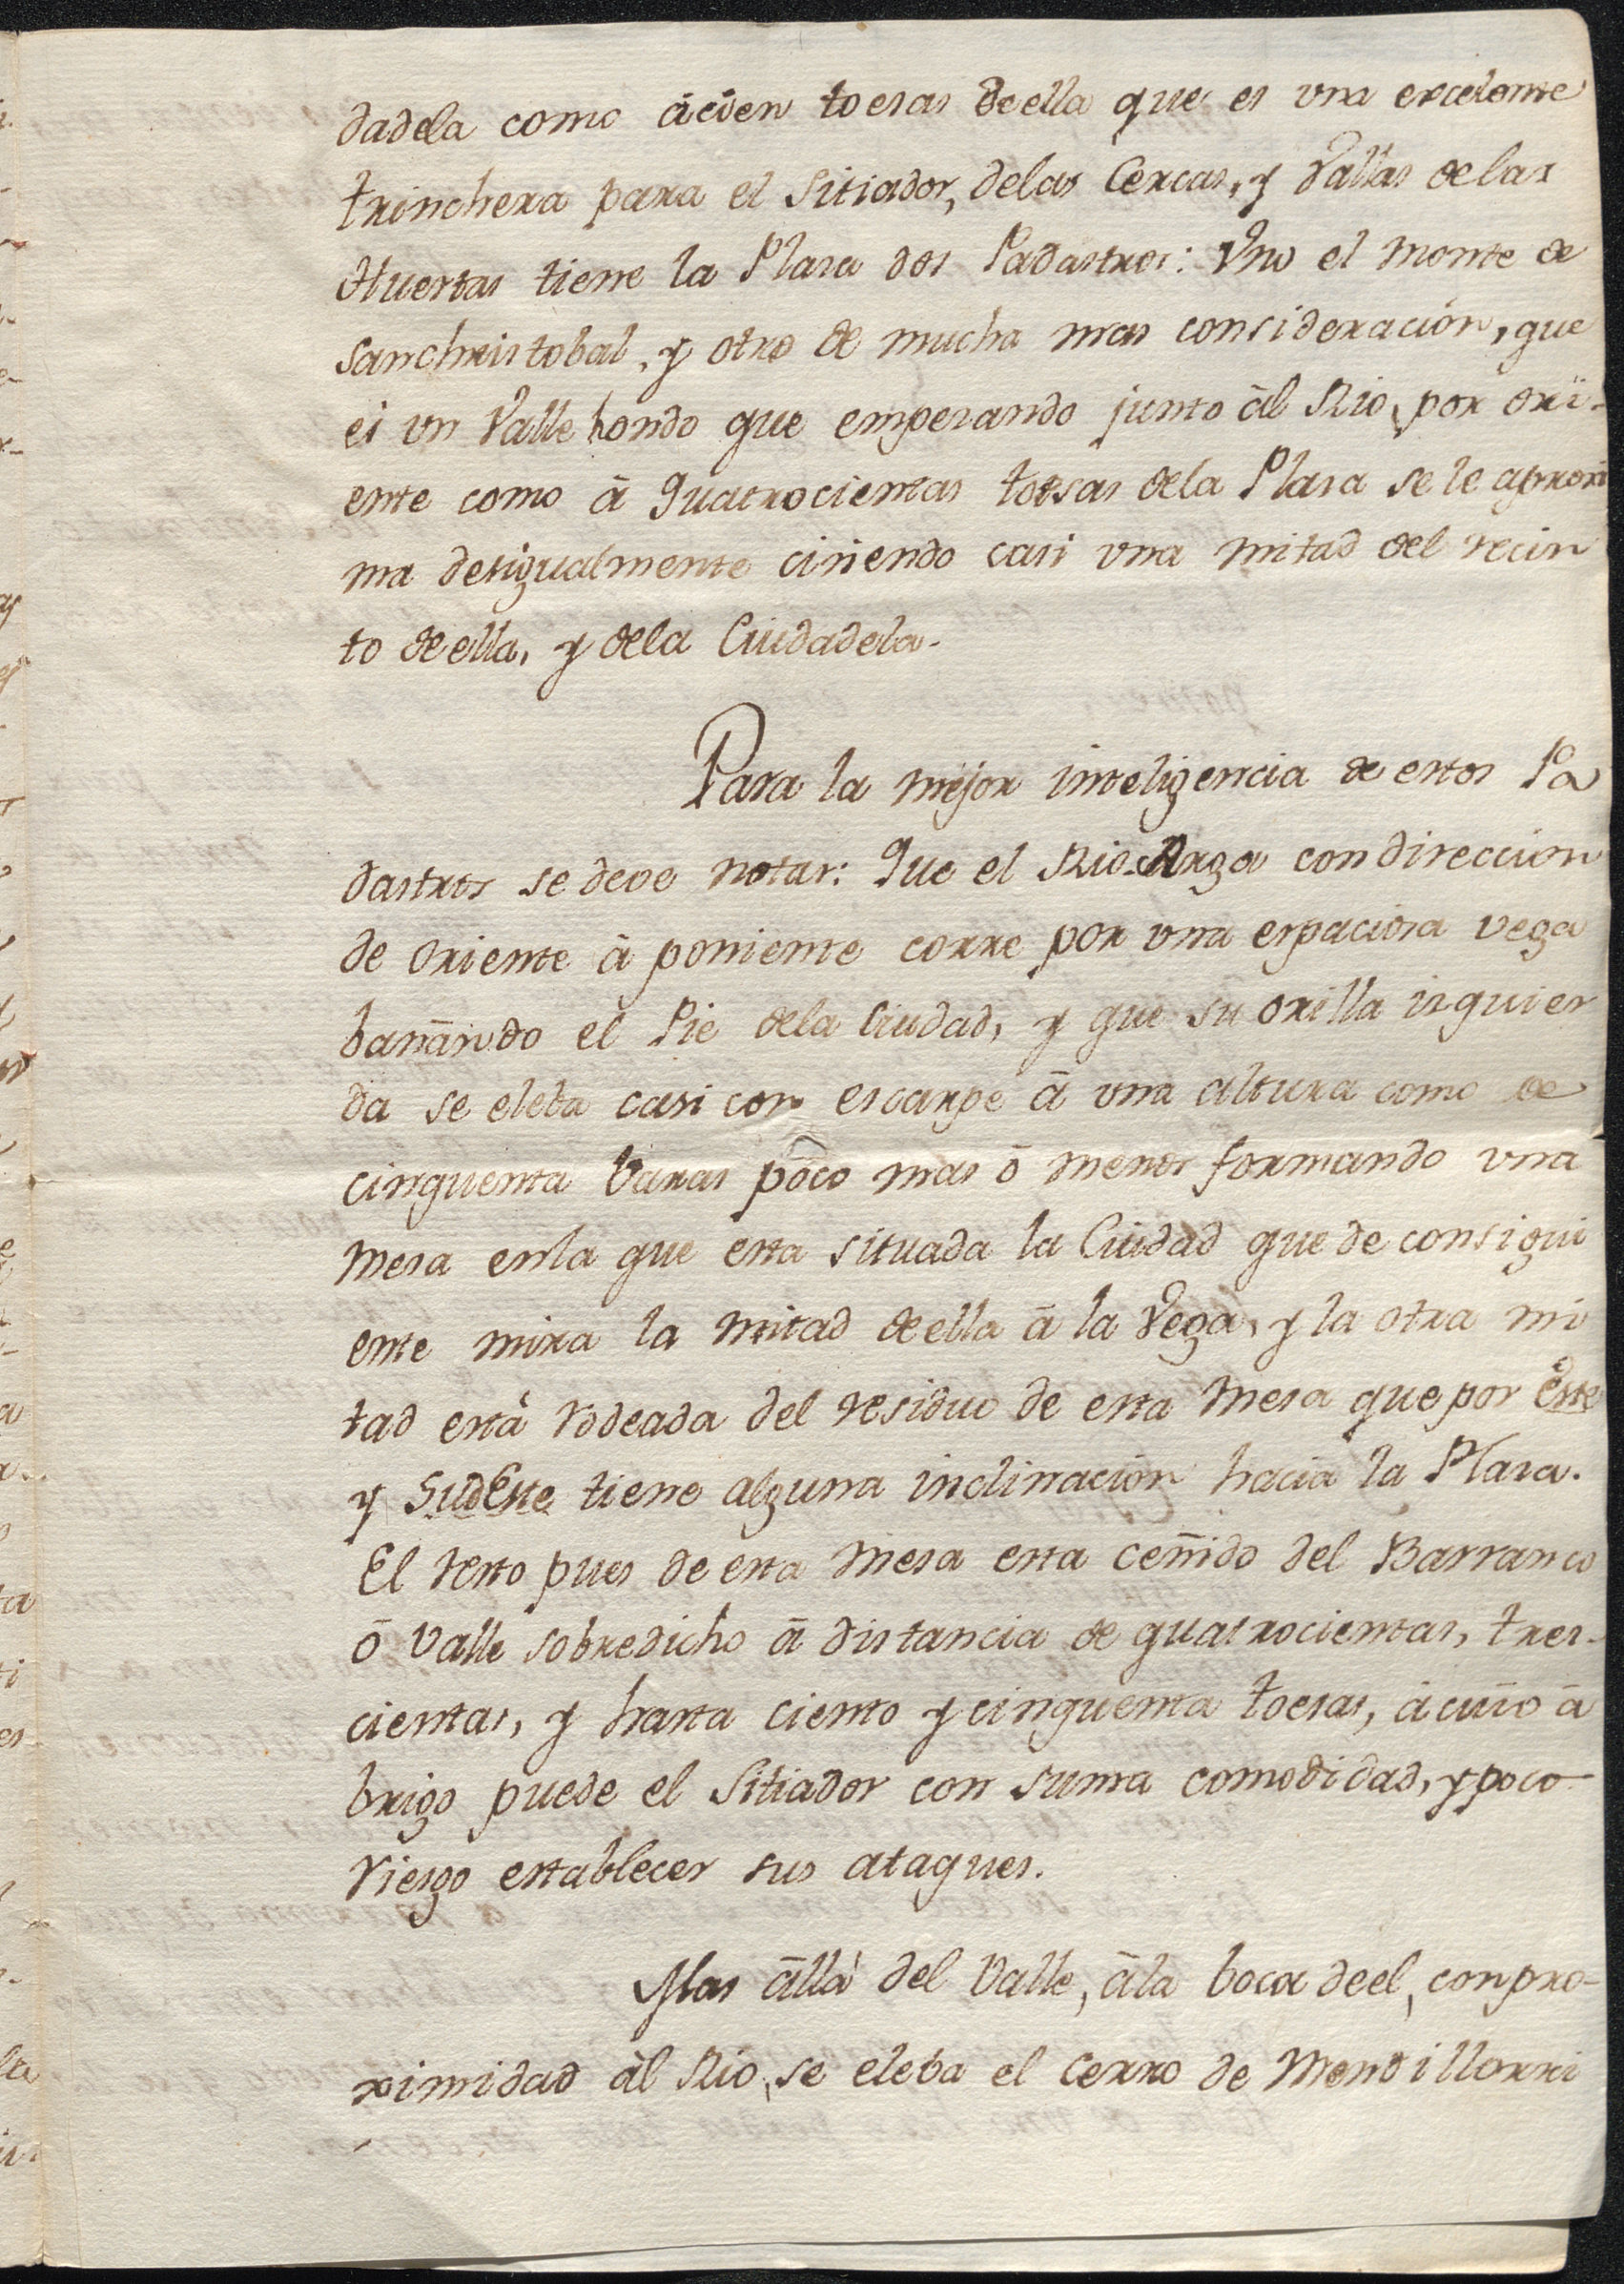 dadela como ácien toesas de ella que es una excelente
trinchera para el Sitiador, delas Cercas, y Vallas delas
Huertas tiene la Plaza dos Padastros: Uno el monte de
Sanchristobal, y otro de mucha mas consideracion, que
es un Valle hondo que empezando junto ál Rio, por ori-
ente como á quatrocientas toesas dela Plaza se le aproxi
ma desigualmente ciñendo casi una mitad del recin
to de ella, y dela Ciudadela.
Para la mejor inteligencia de estos Pa
dastros se deve notar: Que el Rio Arga con direccion
de Oriente á poniente corre por una espaciosa vega
bañando el Pie dela Ciudad, y que su orilla izquier
da se eleba casi con escarpe á una altura como de
cinquenta Varas poco mas ó menos formando una
mesa enla que esta situada la Ciudad que de consigui
ente mira la mitad de ella á la Vega, y la otra mi
tad está rodeada del residuo de esta Mesa que por Este
y SudEste tiene alguna inclinacion hacia la Plaza.
El resto pues de esta mesa esta ceñido del Barranco
ó Valle sobredicho á distancia de quatrocientas, tres-
cientas, y hasta ciento y cinquenta toesas, ácuio á
brigo puede el Sitiador con suma comodidad, y poco
riesgo establecer sus ataques.
Mas állá del Valle, ála boca deel, conpro-
ximidad ál Rio, se eleba el Cerro de Mendillorri